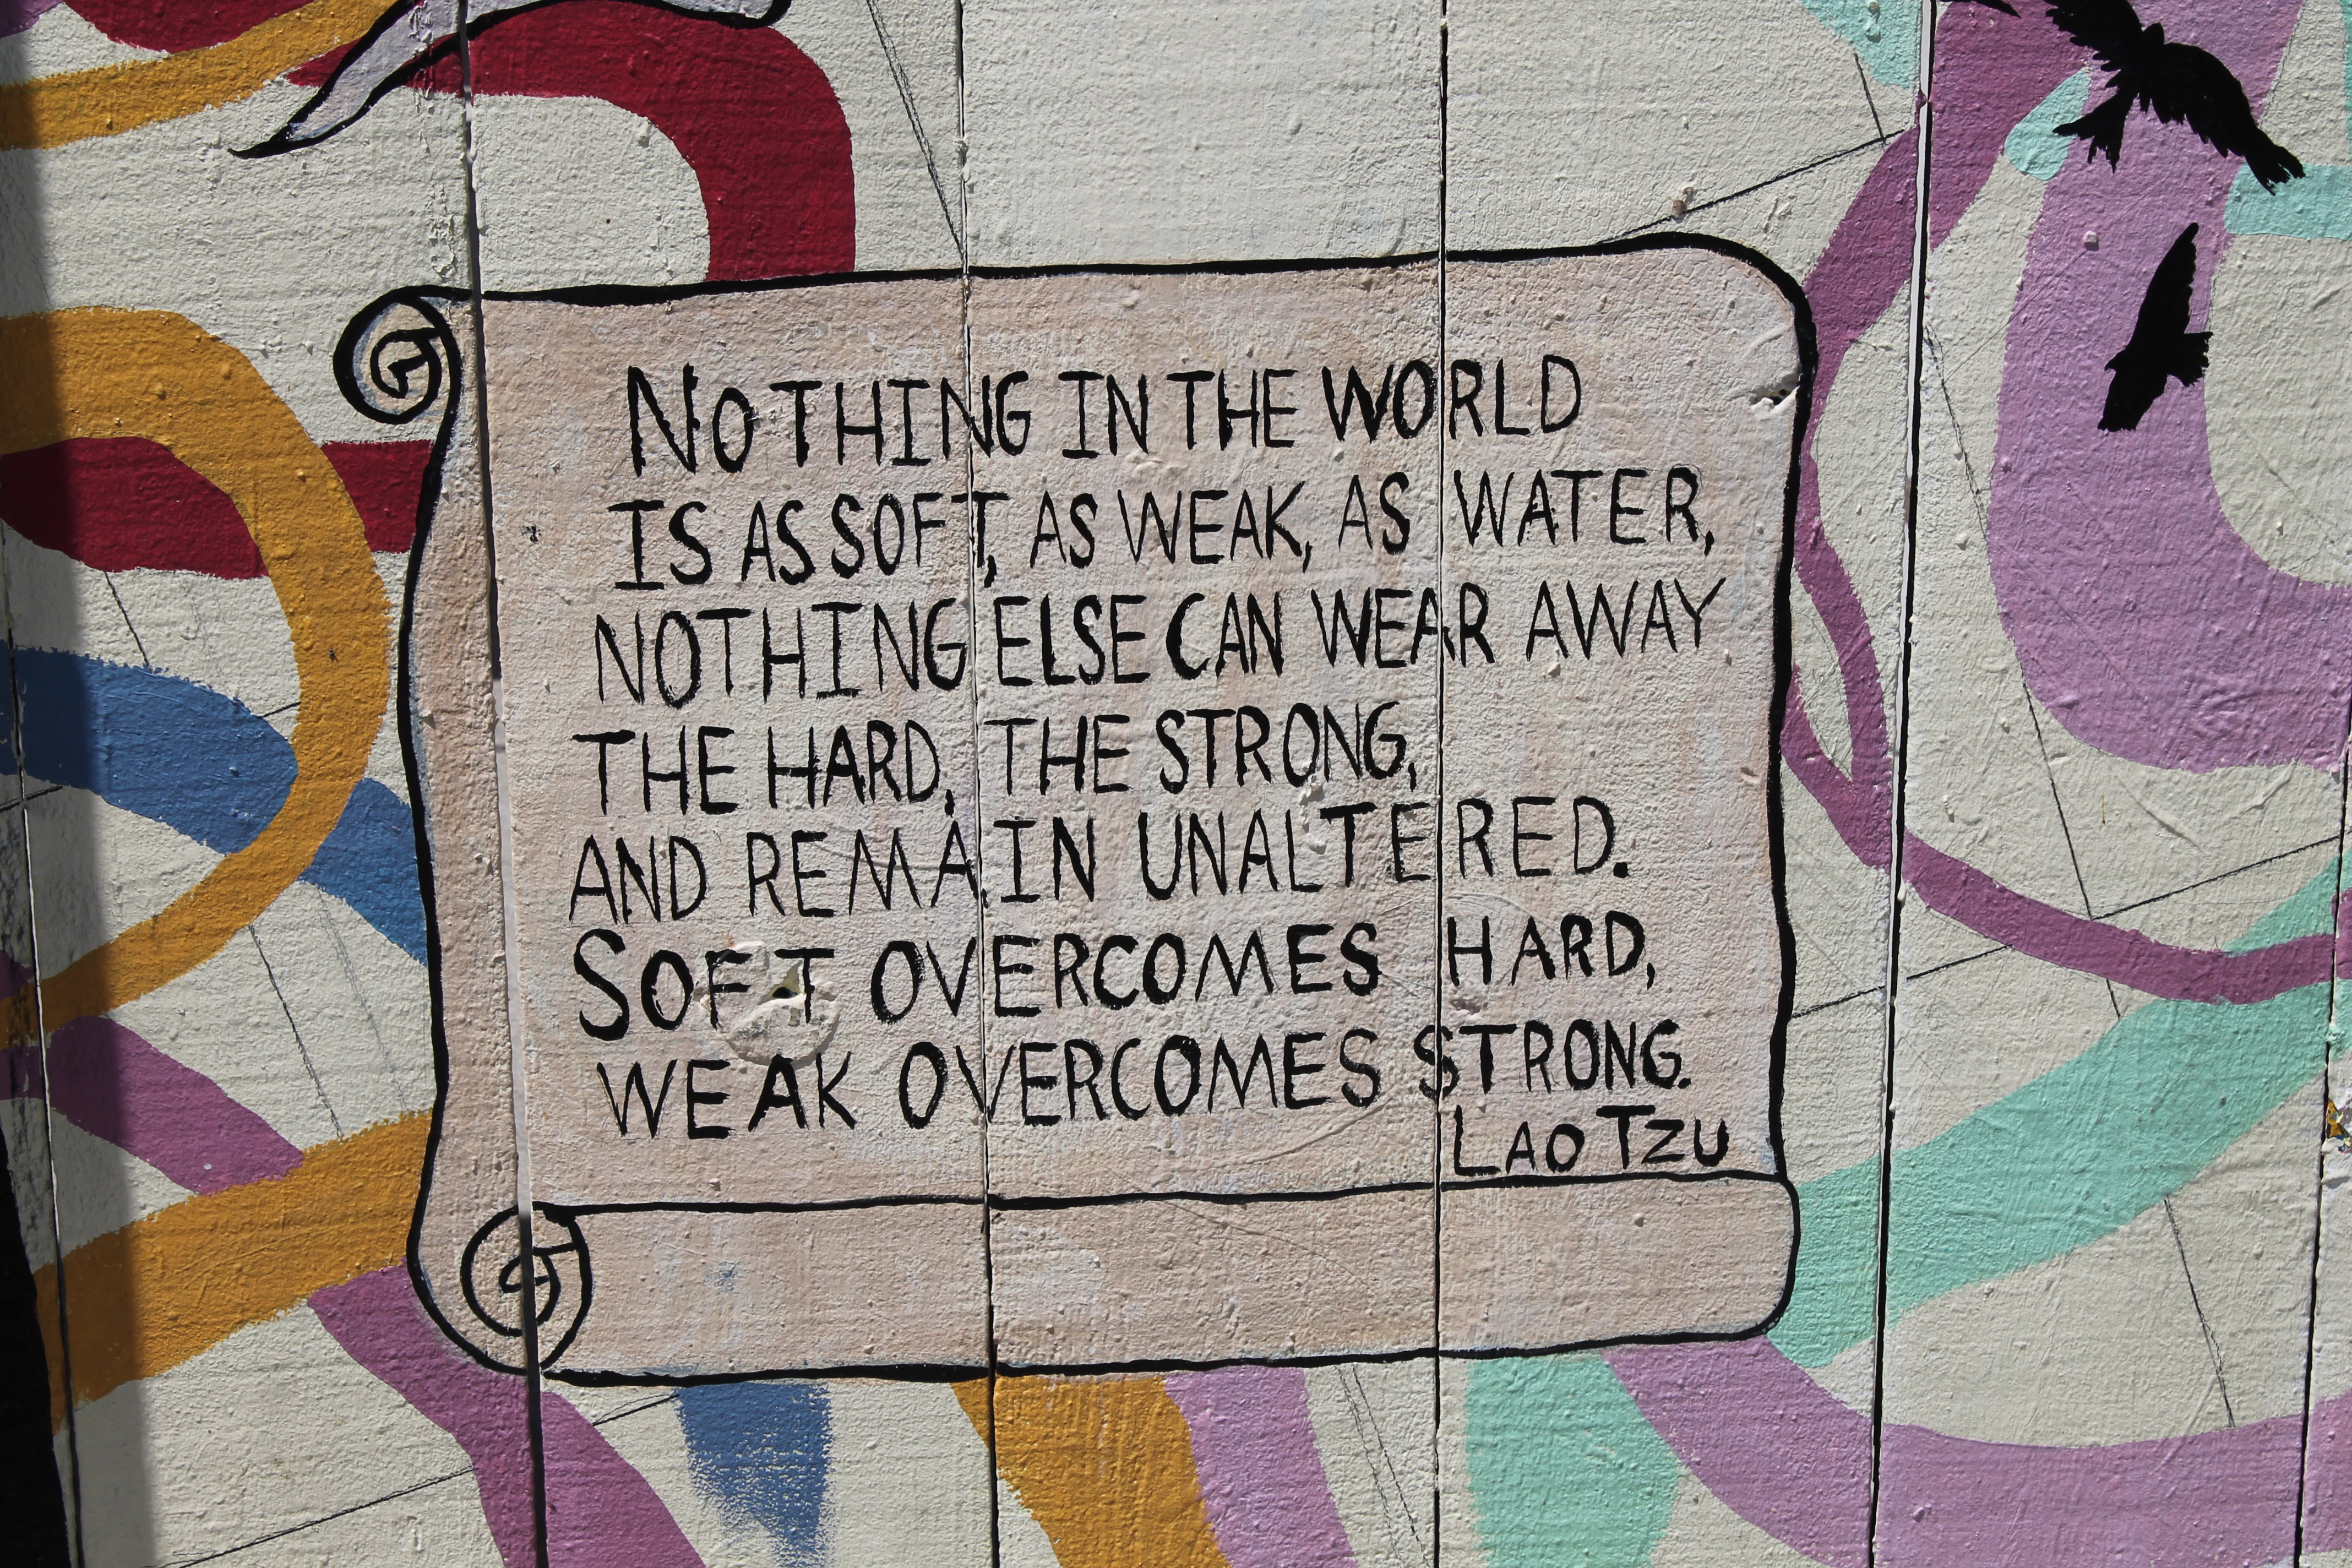 NOTHING IN THE WORLD
IS AS SOFT, AS WEAK, AS WATER,
NOTHING ELSE CAN WEAR AWAY
THE HARD, THE STRONG,
AND REMAIN UNALTERED.
SOFT OVERCOMES HARD,
WEAK OVERCOMES STRONG.
LAO TZU